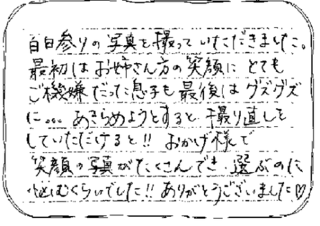 百日参りの写真を撮っていただきました。
最初はお姉さん方の笑顔にとても
ご機嫌だった息子も最後はグズグズ
に... あきらめようとすると撮り直しを
していただけると!! おかげ様で
笑顔の写真がたくさんでき、選ぶのに
悩むくらいでした!! ありがとうございました♡